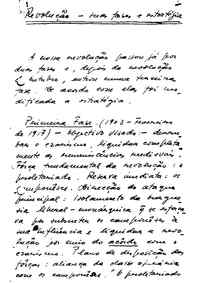 Revolução — suas fases e estratégia
A nossa revolução passou já por
duas fases e, depois da revolução
de Outubro, entrou numa terceira
fase. De acordo com ela foi mo-
dificada a estratégia.
Primeira Fase. (1903 - Fevereiro
de 1917) - Objectivo visado - derru-
bar o czarismo, liquidar completa-
mente as reminiscências medievais.
Força fundamental da revolução: o
proletariado. Reserva imediata: os
camponeses. Direcção do ataque
principal: isolamento da burgue-
sia liberal-monárquica q se esforça-
va por submeter os camponeses à
sua influência e liquidar a revo-
lução por meio do acôrdo com o
czarismo. Plano de disposição das
fôrças: aliança da classe operária
com os camponeses. "O proletariado